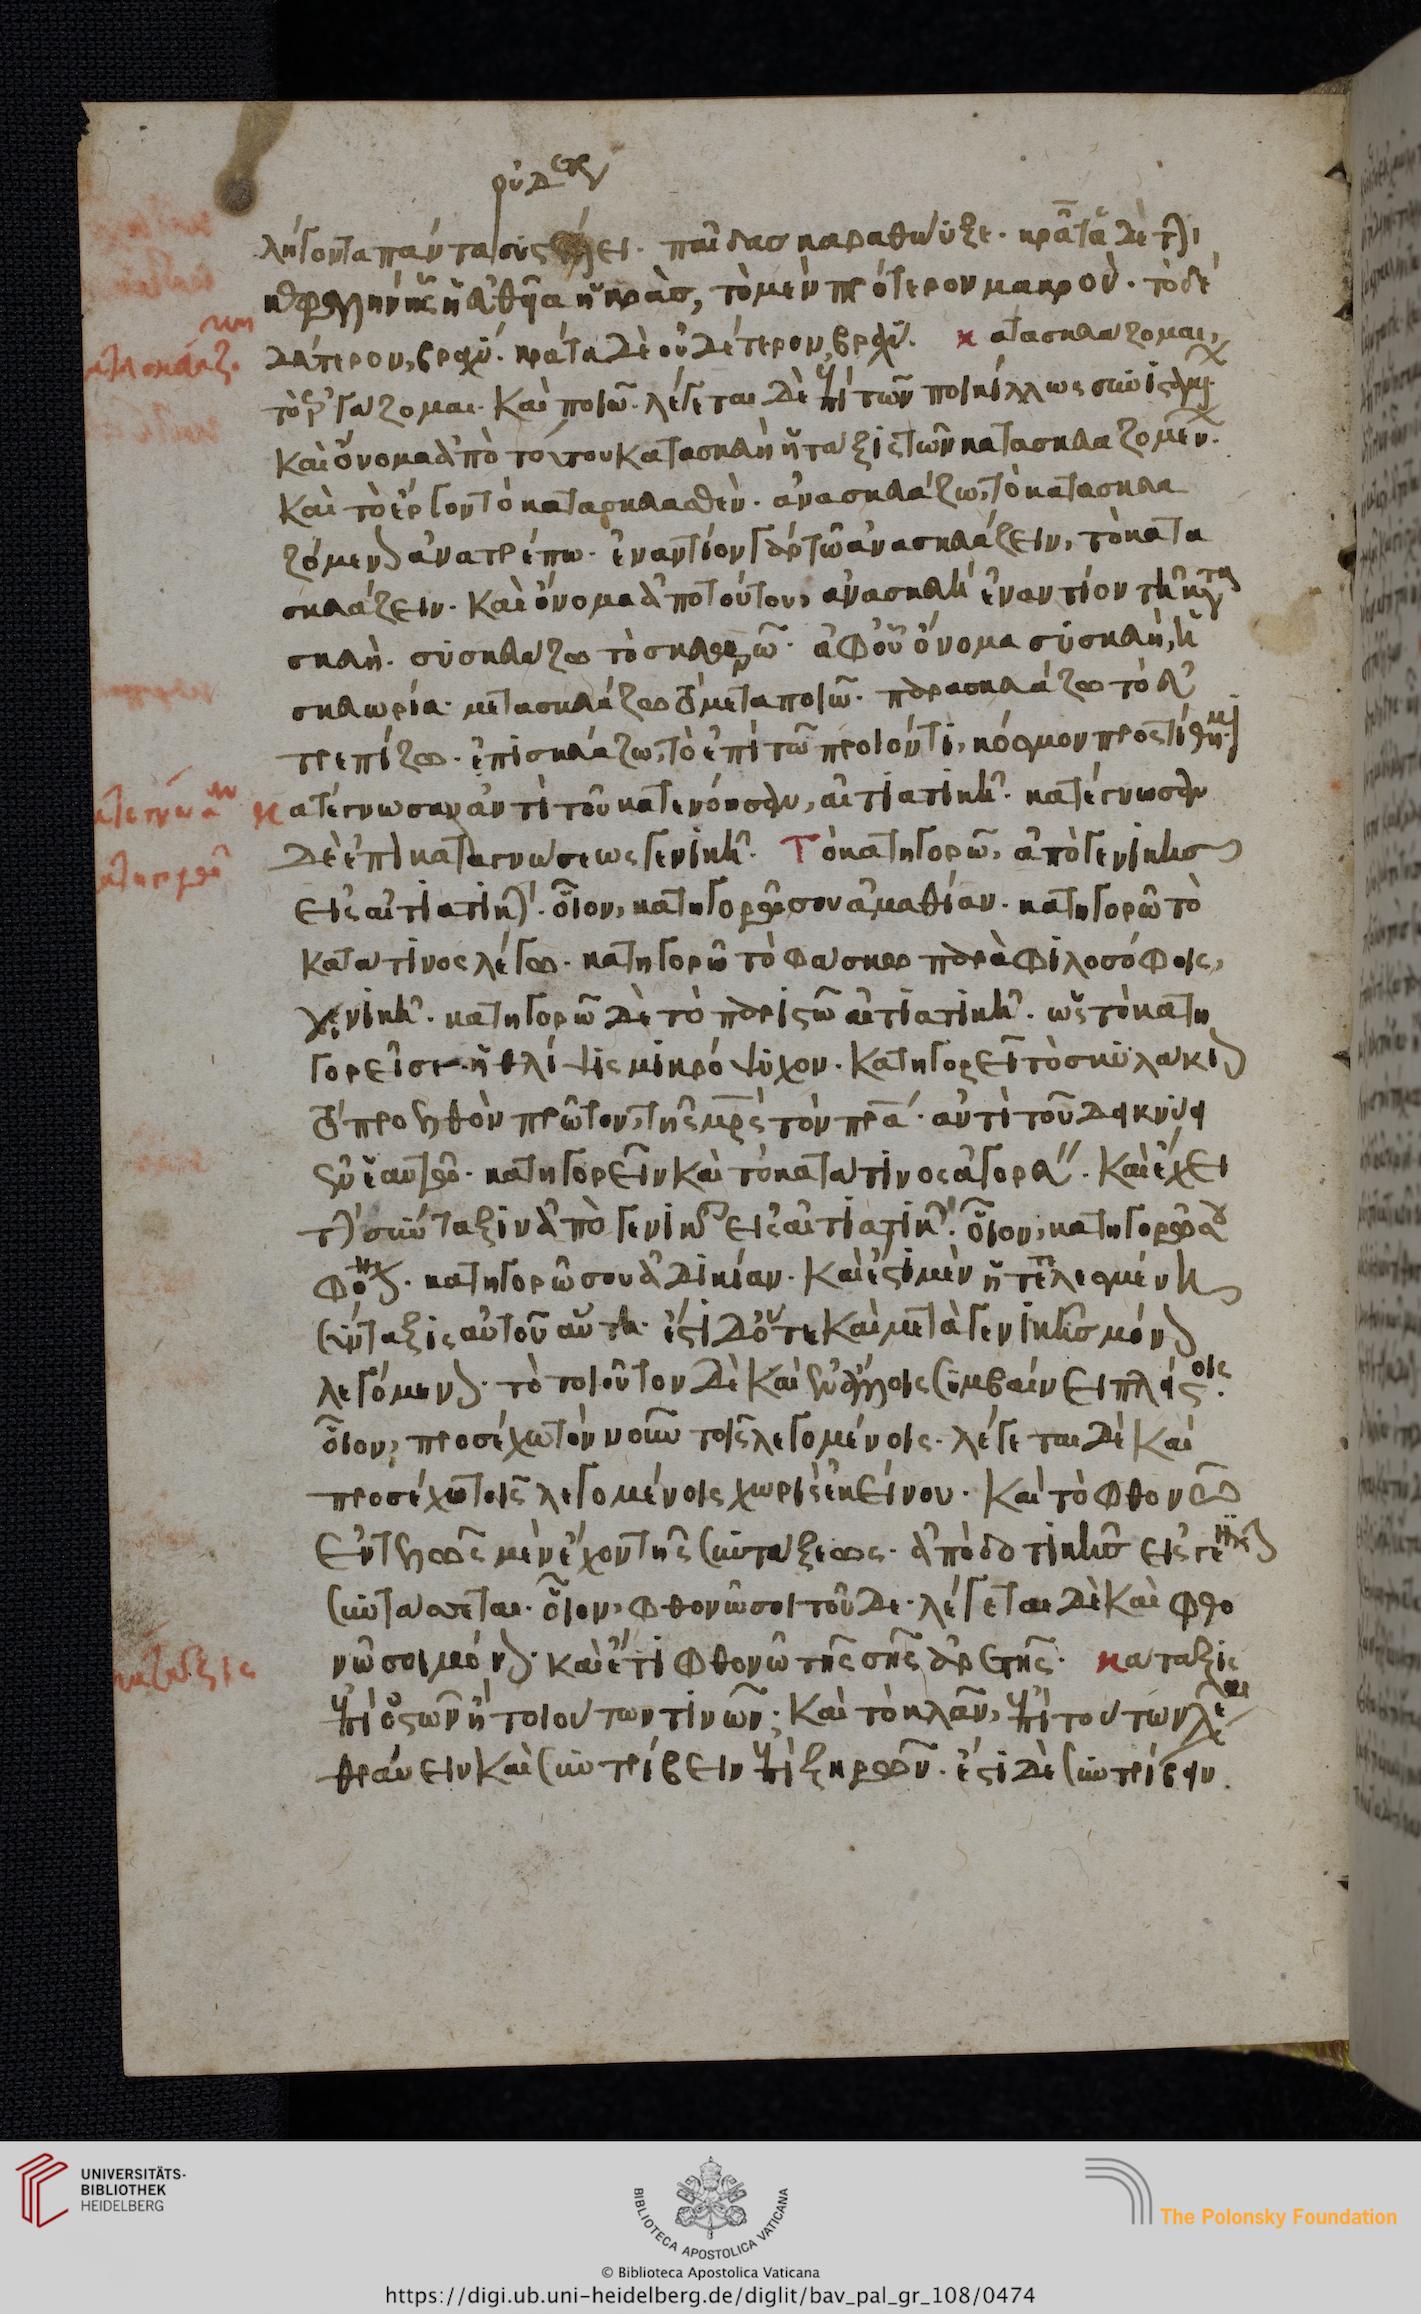 οὐδε
λήγοντα πάντα συστέλλει. παῖδας παραθωύξε. κρᾶτα δὲ τὴν
τὸ μὲν πρότερον μακρὸν. τὸ δὲ
δεύτερον, βραχύ. κρᾶτα δὲ οὐδέτερον, βραχύ. κατασκευάζομαι,
τὸ ἐργάζομαι. καὶ ποιῶ. λέγεται δὲ ἐπὶ τῶν ποικίλλως
καὶ ὄνομα ἀπὸ τούτου κατασκευὴ ἡ τάξις τῶν κατασκευαζομένων.
καὶ τὸ ἔργον τὸ κατασκευασθέν. ἀνασκευάζω, τὸ κατασκευα
ζόμενον ἀνατρέπω. ἐναντίον γάρ τῶ ἀνασκευάζειν, τὸ κατα
σκευάζειν. καὶ ὄνομα ἀπὸ τούτου, ἀνασκευή ἐναντίον τῆ κατα
σκευῆ. συσκευάζω τὸ σκευωρῶ. ἀφ' οὗ ὄνομα συσκευὴ, ἡ
σκευωρία. μετασκευάζω τὸ μεταποιῶ. παρασκευάζω τὸ εὐ
τρεπίζω. ἐπισκευάζω, τὸ ἐπὶ τῶ προϊόντι, κόσμον προστίθημι
κατέγνωσαν ἀντὶ τοῦ κατενόησαν, αἰτιατικῆ. κατέγνωσαν
δὲ ἐπὶ καταγνώσεως γενικῆ. Τὸ κατηγορῶ, ἀπὸ γενικῆς
εἰς αἰτιατικήν. οἷον, κατηγορῶ σου ἀμαθίαν. κατηγορῶ τὸ
κατά τινος λέγω. κατηγορῶ τὸ φάσκω παρὰ φιλοσόφοις,
γενικῆ. κατηγορῶ δὲ τὸ παριστῶ αἰτιατικῆ. ὡς τὸ κατη
γορεῖ σε ἡ θλίψις μικρόψυχον. κατηγορεῖ τὸ σκυλάκιον
πρῶτον, τῆς μητρὸς τὸν πατέρα. ἀντὶ τοῦ δακνύει
ἐν ἑαυτῶ. κατηγορεῖν καὶ τὸ κατά τινος ἀγορεύειν. καὶ ἔχει
τὴν σύνταξιν ἀπὸ γενικῆς εἰς αἰτιατικήν. οἷον, κατηγορῶ σου
φόνον. κατηγορῶ σου ἀδικίαν. καὶ ἔστι μὲν ἡ τετελεσμένη
σύνταξις αὐτοῦ αὕτη. ἔστι δ' ὅτε καὶ μετὰ γενικῆς μόνον
λεγόμενον. τὸ τοιοῦτον δὲ καὶ ἐν ἄλλοις συμβαίνει πλείστοις.
οἷον, προσέχω τὸν νοῦν τοῖς λεγομένοις. λέγεται δὲ καὶ
προσέχω τοῖς λεγομένοις χωρὶς ἐκείνου. καὶ τὸ φθονῶ
ἐντελῶς μὲν ἔχον τῆς συντάξεως. ἀπὸ δοτικῆς εἰς γενικὴν
συντάσσεται. οἷον, φθονῶ σοι τοῦδε. λέγεται δὲ καὶ φθο
νῶ σοι μόνον. καὶ ἔτι φθονῶ τῆς σῆς ἀρετῆς. κάταξις
ἐπὶ ὀστῶν ἢ τοιούτων τινῶν. καὶ τὸ κλᾶν, ἐπὶ τούτων λέγεται
θραύειν καὶ συντρίβειν ἐπὶ ξηρῶν. ἔστι δὲ συντρίβειν.
κάταξις
UNIVERSITÄTS-
BIBLIOTHEK
HEIDELBERG
BIBLIOTECA APOSTOLICA VATICANA
The Polonsky Foundation
© Biblioteca Apostolica Vaticana
https://digi.ub.uni-heidelberg.de/diglit/bav_pal_gr_108/0474